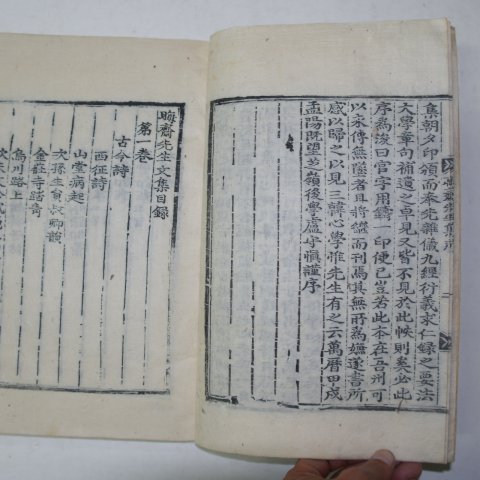 集朝夕印領而奉先雜儀九經衍義求仁錄之要法
大學章句補遺之卓見又皆不見於此帙則奚必此
序爲後日官字用鑄一印便已豈若此本在吾州可
以永傳無墜者且將鑑而刊焉其無所爲遂書所
感以歸之以見三諱心學惟先生有之云萬曆甲戌
孟陽旣望豊嶺後學盧守愼謹序
晦齋先生文集目錄
第一卷
古今詩
西征詩
山堂病起
次孫生員叔卿韻
金莊寺踏靑
烏川路上